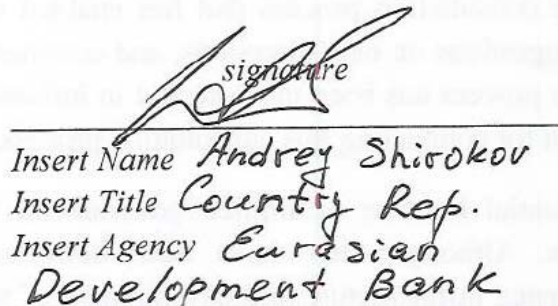 signature
Insert Name Andrey Shirokov
Insert Title County Rep
Insert Agency Eurasian
Development Bank